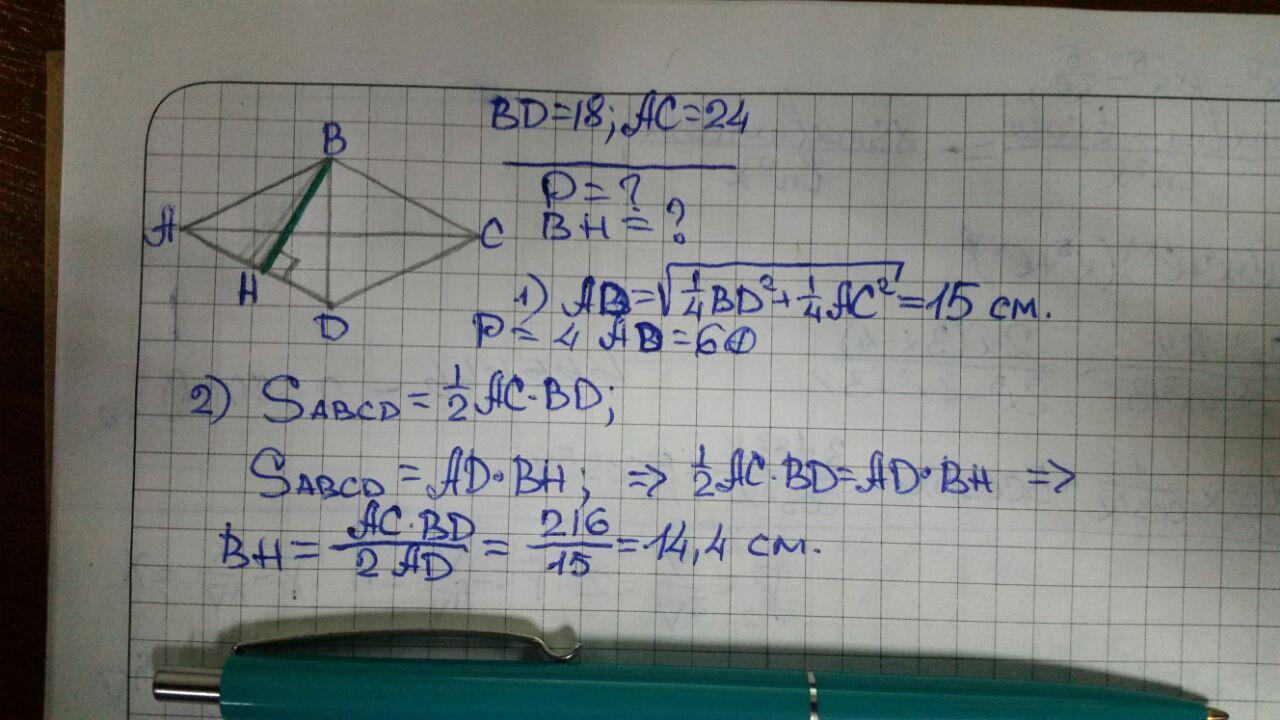 B
A
C
H
D
BD=18; AC=24
P=?
BH=?
1) AD=√(1/4 BD²+1/4 AC²)=15 см.
P=4 AD=60
2) S ABCD = 1/2 AC·BD;
S ABCD = AD·BH; => 1/2 AC·BD=AD·BH =>
BH = AC·BD/2 AD = 216/15 = 14,4 см.